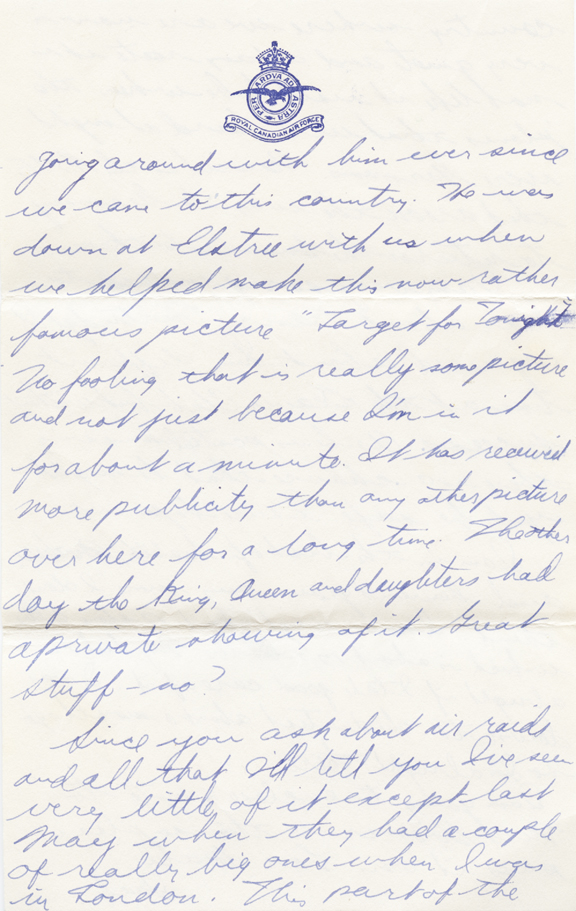 PER ARDVA AD ASTRA
ROYAL CANADIAN AIR FORCE
going around with him ever since
we came to this country. He was
down at Elstree with us when
we helped make this now rather
famous picture "Target for Tonight"
No fooling that is really some picture
and not just because I'm in it
for about a minute. It has received
more publicity than any other picture
over here for a long time. The other
day the King, Queen and daughters had
a private showing of it. Great
stuff - no?
Since you ask about air raids
and all that I'll tell you I've seen
very little of it except last
May when they had a couple
of really big ones when I was
in London. This part of the